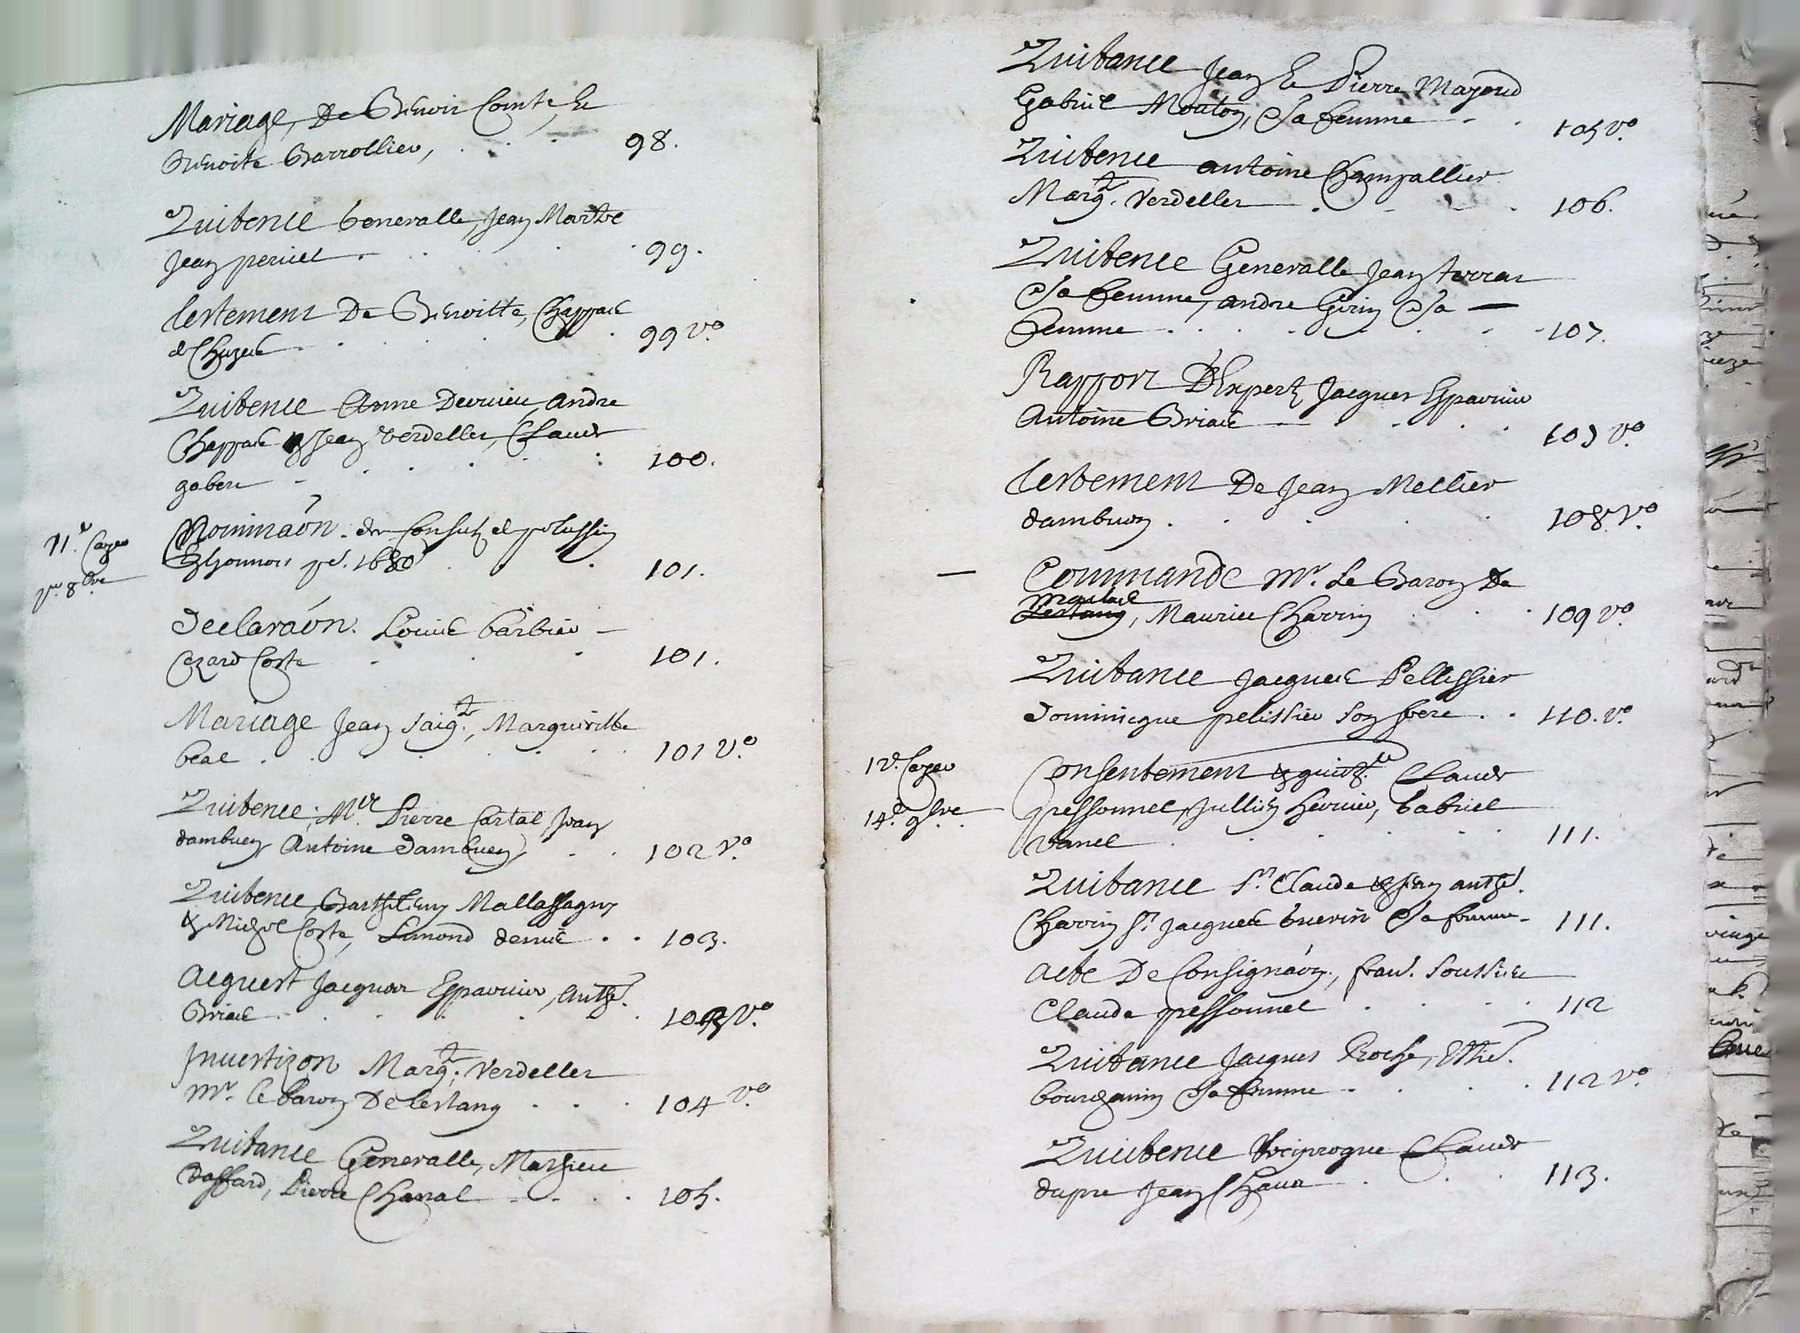 Mariage, De Benoit Comte, &
Benoite Barrollier, 98.
Quitence Generalle, Jean Martre
Jean periset 99.
testement De Benoitte, Chappas
de Chuzeus 99 Vo.
Quitence Anne Decuieu, andre
Chappas & Jean Verdellet, Claude
gabere 100.
Nominãon. des Consulz de pelussin
Lhonnois pr. 1680 101.
11e. Cayer
pr. 8bre
Declarãon. Louise barbier
Cezard Coste 101.
Mariage Jean Saige., Marguiritte
beal 101 Vo.
Quitence, Mre Pierre Cartal, Jean
dambuen Antoine Dambuen 102 Vo.
Quitence, Barthelemy Mallassagny
& Michel Coste, Simond denuis 103.
Acquest Jacques Esparnier, anthe.
Brias 103 Vo.
Jnuestizon Margte. Verdellet
Mr. le baron De lestang 104 Vo.
Quitance Generalle, Mathieu
Daffard, Pierre Chanal 105.
Quitance Jean & Pierre Mazoud
Gabriel Mouton, & Sa femme 105 Vo.
Quitence antoine Champallier
Margte. Verdellet 106.
Quitence Generalle Jean terras
& Sa femme, andre Girin & Sa
femme 107.
Rapport D'Expertz Jacques Esparnier
Antoine Brias 107 Vo.
testement De Jean Mellier
dambuen 108 Vo.
Commande Mr. Le Baron De
lestang, Maurice Charrin 109 Vo.
Quitance Jacques Pellissier
Dominicque pelissier Son frere 110. Vo.
12e. Cayer
14e. 9bre
Consentement & quitce. Claude
pressonnet, Jullien heruier, Gabriel
Vanel 111.
Quitance Sr. Claude & Jean anthe.
Charrin Sr. Jacques Guerin & Sa femme 111.
Acte De Consignãon, frans. Soutrier
Claude pressonnet 112
Quitance Jacques Roche, Ethe.
bourganin & Sa femme 112 Vo.
Quitence Reciproque Claude
dupre Jean Chaua 113.